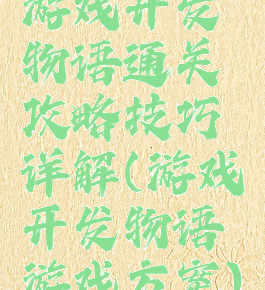 游戏开发
物语通关
攻略技巧
详解(游戏
开发物语
游戏方案)